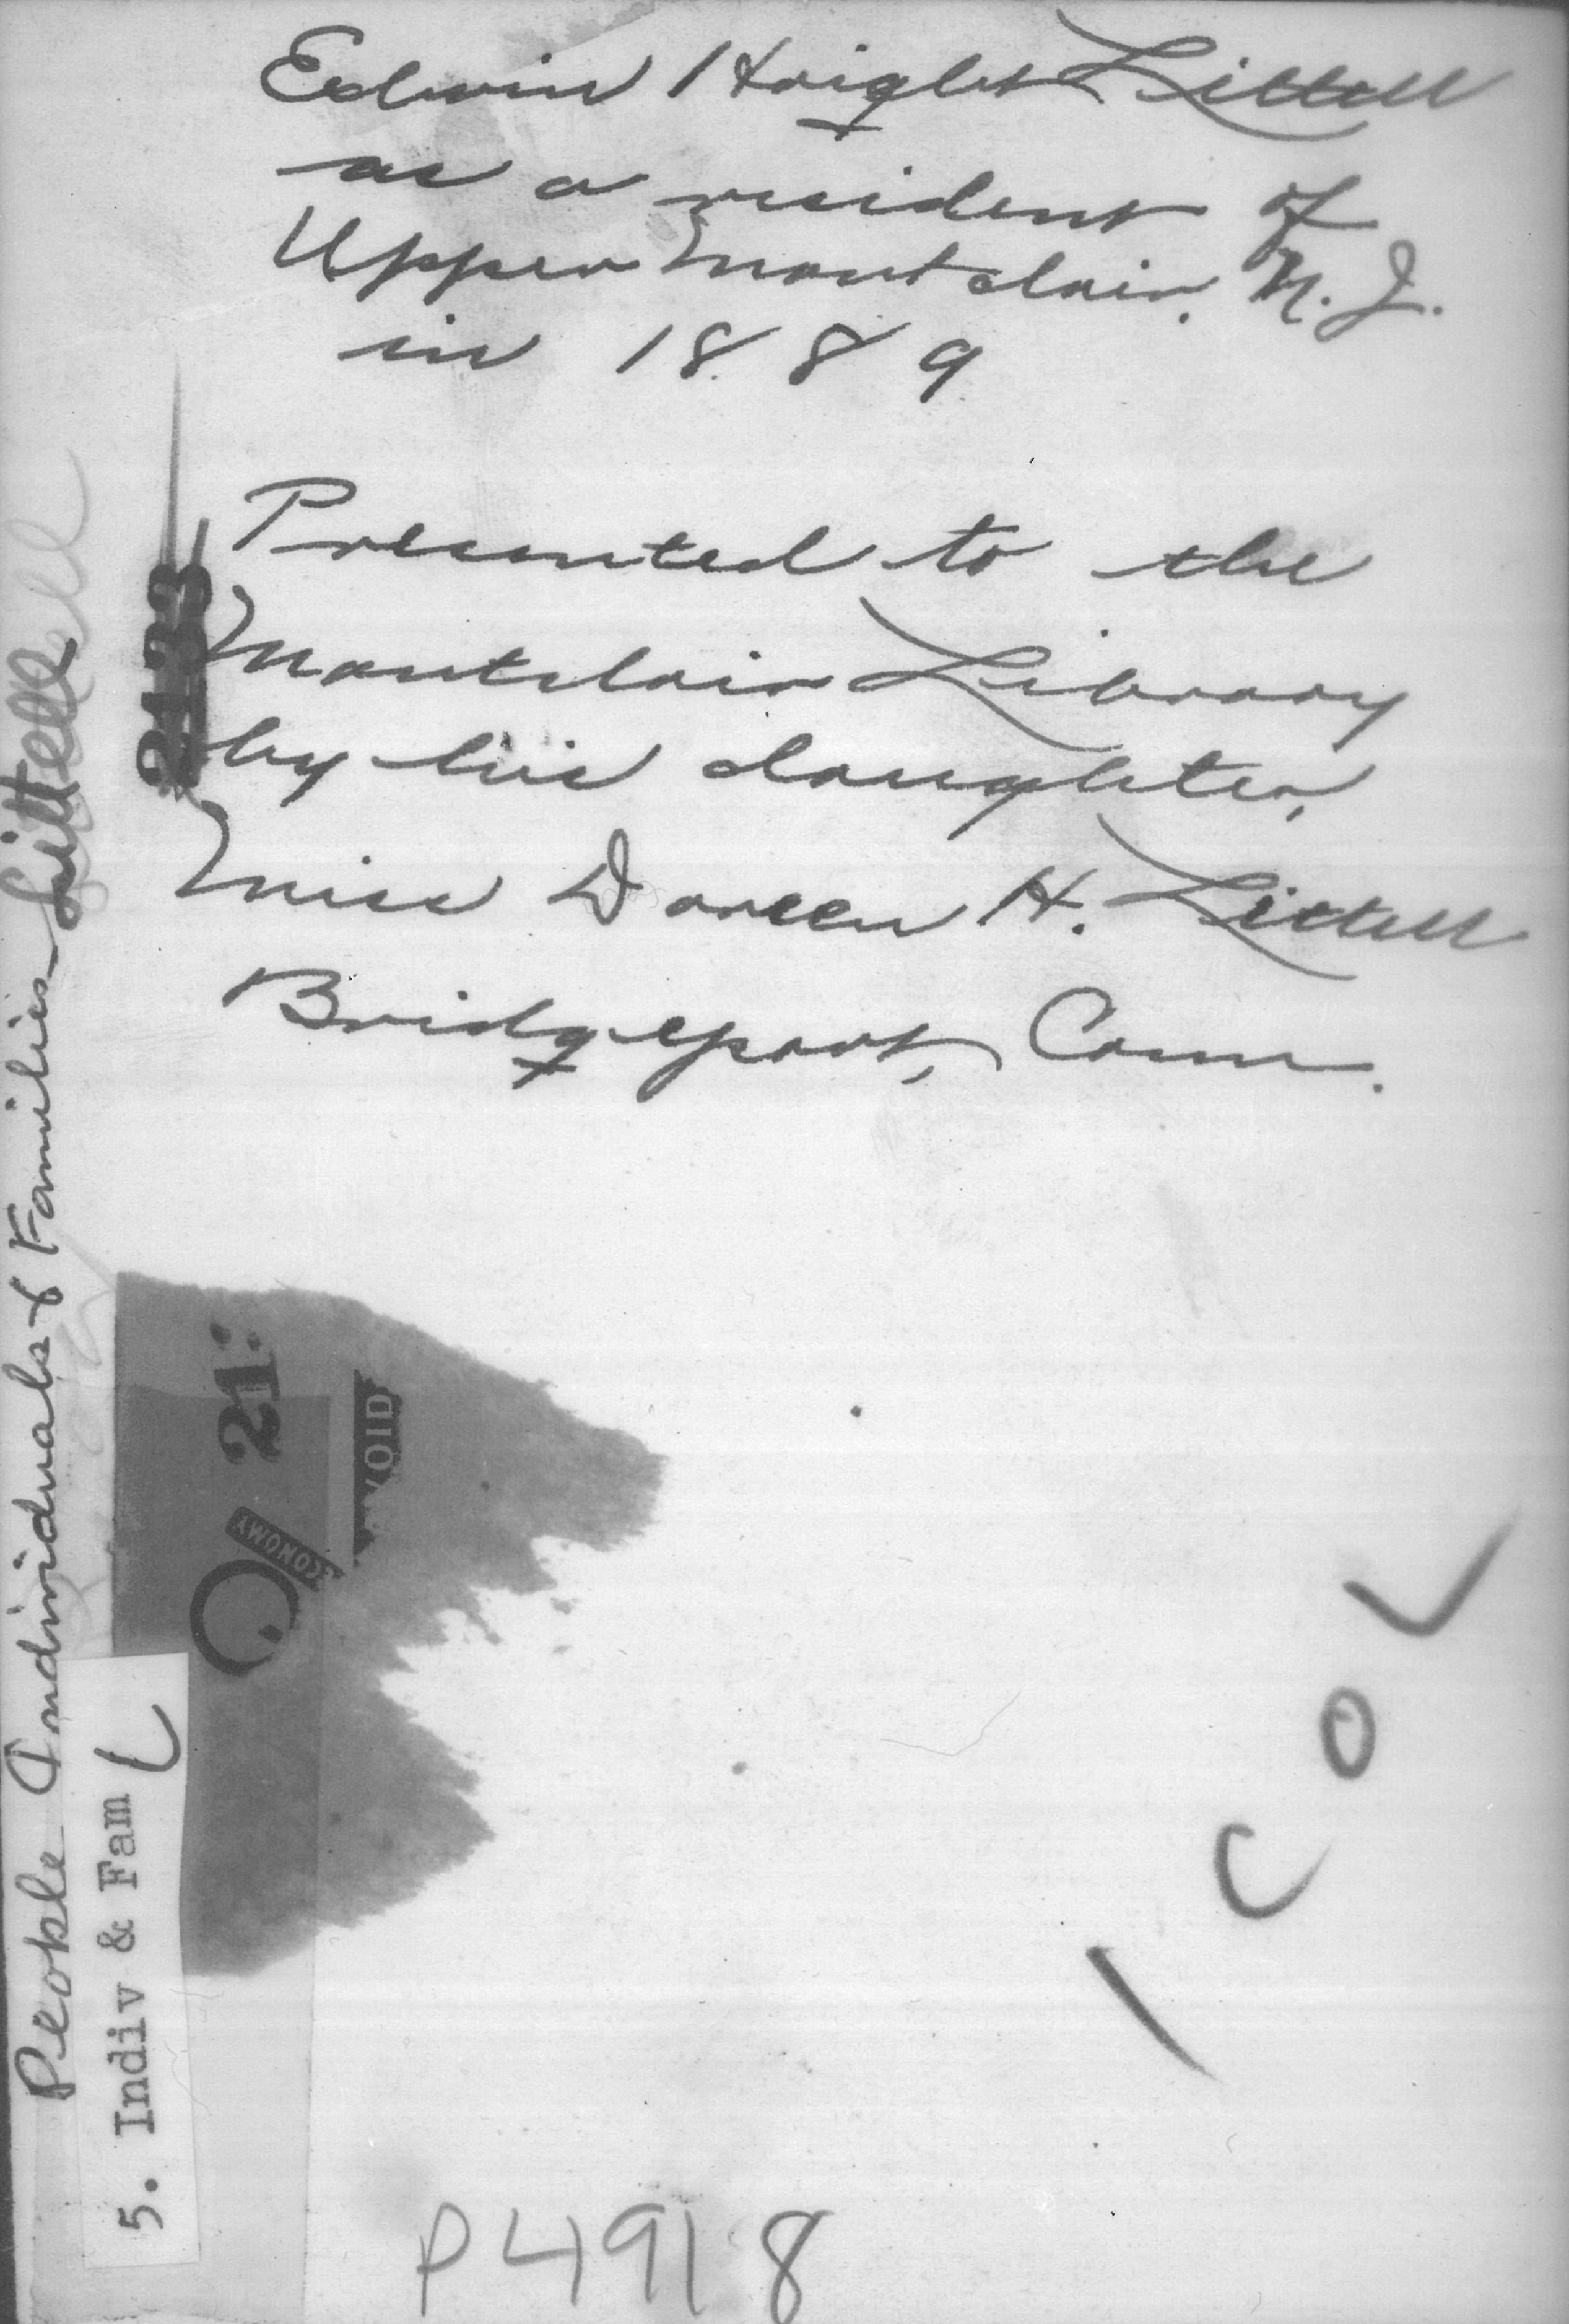 Edwin Haight Littell
as a resident of
Upper Montclair, N.J.
in 1889
Presented to the
Montclair Library
by his daughter,
Miss Doreen H. Littell
Bridgeport, Conn.
People Individuals & Families - Littell
5. Indiv & Fam L
2133
21
VOID
ECONOMY
1 col
P4918